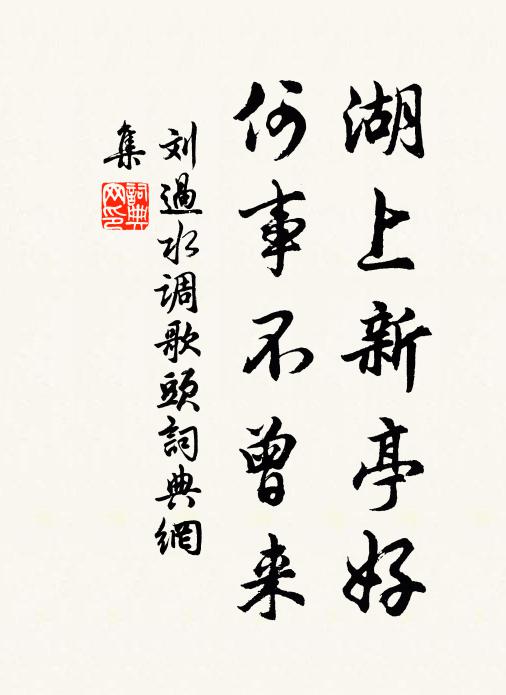 湖上新亭好
何事不曾来
刘過水调歌頭詞典網
集
詞典
网印